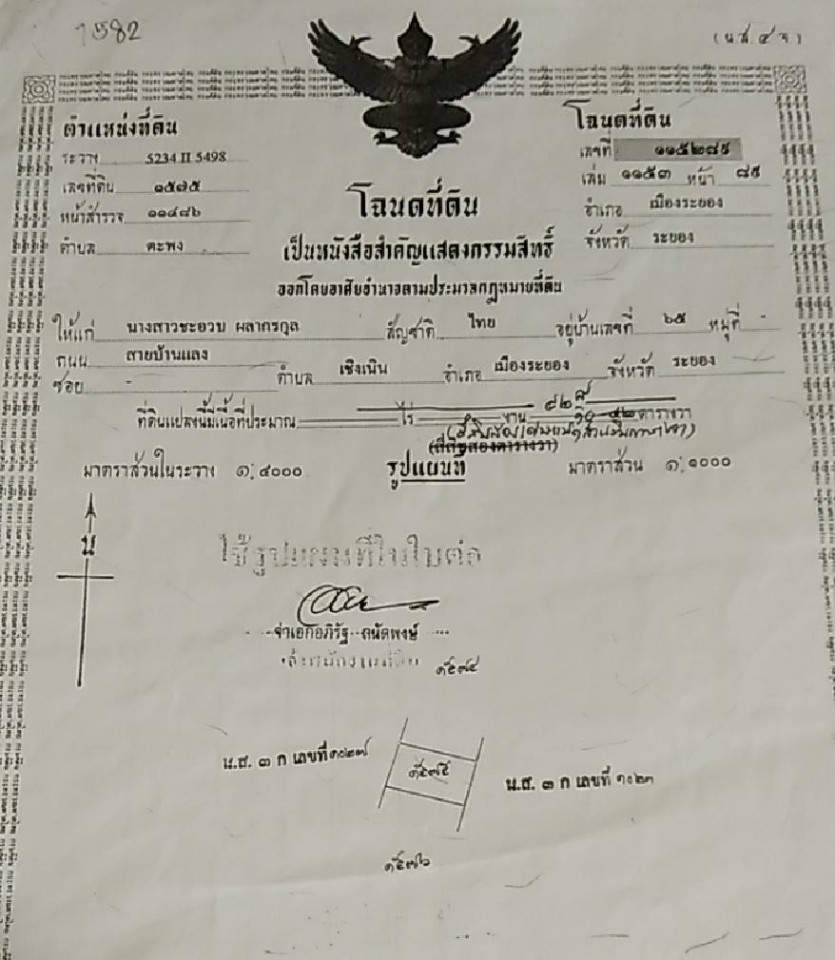 1582
(น.ส. ๔ จ)
ตำแหน่งที่ดิน
ระวาง 5234 II 5498
เลขที่ดิน ๑๕๗๕
หน้าสำรวจ ๑๑๔๘๖
ตำบล ตะพง
โฉนดที่ดิน
เลขที่ ๑๑๕๒๘๕
เล่ม ๑๑๕๓ หน้า ๘๕
อำเภอ เมืองระยอง
จังหวัด ระยอง
โฉนดที่ดิน
เป็นหนังสือสำคัญแสดงกรรมสิทธิ์
ออกโดยอาศัยอำนาจตามประมวลกฎหมายที่ดิน
ให้แก่ นางสาวชะอวบ ผลากรกุล สัญชาติ ไทย อยู่บ้านเลขที่ ๖๕ หมู่ที่ -
ถนน สายบ้านแลง
ซอย - ตำบล เชิงเนิน อำเภอ เมืองระยอง จังหวัด ระยอง
ที่ดินแปลงนี้มีเนื้อที่ประมาณ ไร่ งาน ๔๒ ตารางวา
(สี่สิบสองตารางวา)
มาตราส่วนในระวาง ๑:๔๐๐๐ รูปแผนที่ มาตราส่วน ๑:๑๐๐๐
น
ใช้รูปแผนที่ในใบต่อ
จ่าเอกอภิรัฐ ถนัดพงษ์
๑๕๗๔
น.ส. ๓ ก เลขที่ ๑๐๒๗
๑๕๗๕
น.ส. ๓ ก เลขที่ ๑๐๒๓
๑๕๗๖